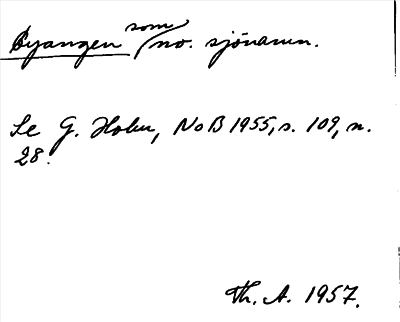 Byangen som no. sjönamn.
Se G. Holm, NoB 1955, s. 109, n.
28.
Th. A. 1957.